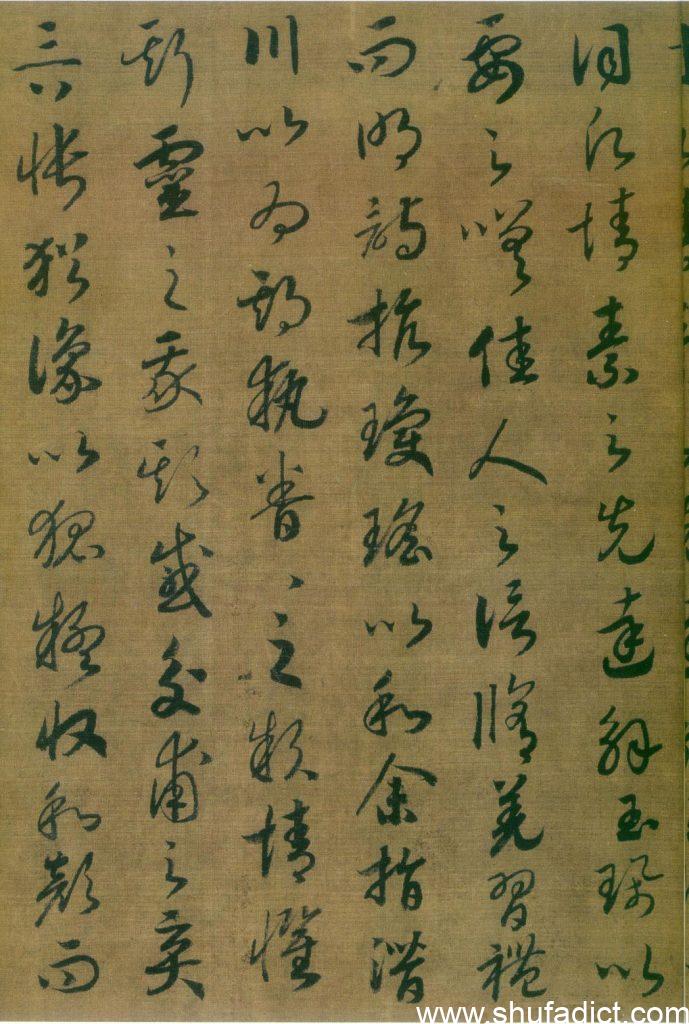 詞情素之先達解玉珮以
要之嗟佳人之信脩羌習禮
而明詩抗瓊瑤以和余指潛
川以為期執眷〻之款情懼
斯靈之我欺感交甫之棄
言悵猶豫以狐疑收和顏而
www.shufadict.com